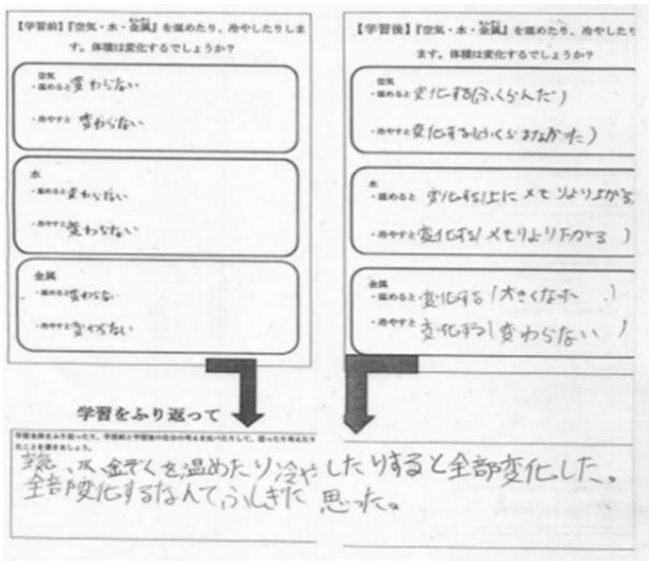 【学習前】『空気・水・金属』を温めたり、冷やしたりしま
す。体積は変化するでしょうか？
空気
・温めると変わらない
・冷やすと 変わらない
水
・温めると変わらない
・冷やすと変わらない
金属
・温めると変わらない
・冷やすと変わらない
【学習後】『空気・水・金属』を温めたり、冷やしたり
ます。体積は変化するでしょうか？
空気
・温めると 変化する(ふくらんだ)
・冷やすと変化する(ふくらまなかった)
水
・温めると 変化する(上にメモリより上がる
・冷やすと変化する(メモリより下がる)
金属
・温めると 変化する(大きくなった)
・冷やすと 変化する(変わらない)
学習をふり返って
学習全体をふり返ったり、学習前と学習後の自分の考えを比べたりして、思ったり考えたり
たことを書きましょう。
空気、水、金ぞくを温めたり冷やしたりすると全部変化した。
全部変化するなんてふしぎだ 思った。